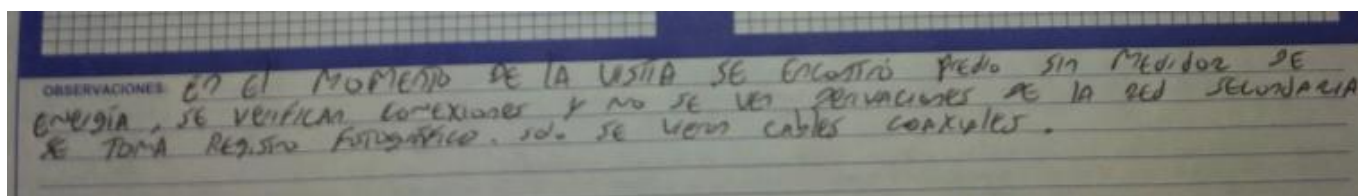 OBSERVACIONES: En El MOMENTO DE LA VISTIA SE ENCONTRÓ PREDIO SIN MEDIDOR DE
ENERGÍA, SE VERIFICAN CONEXIONES Y NO SE VEN DERIVACIONES DE LA RED SECUNDARIA
SE TOMA REGISTRO FOTOGRÁFICO. SOLO SE VEN CABLES COAXIALES.